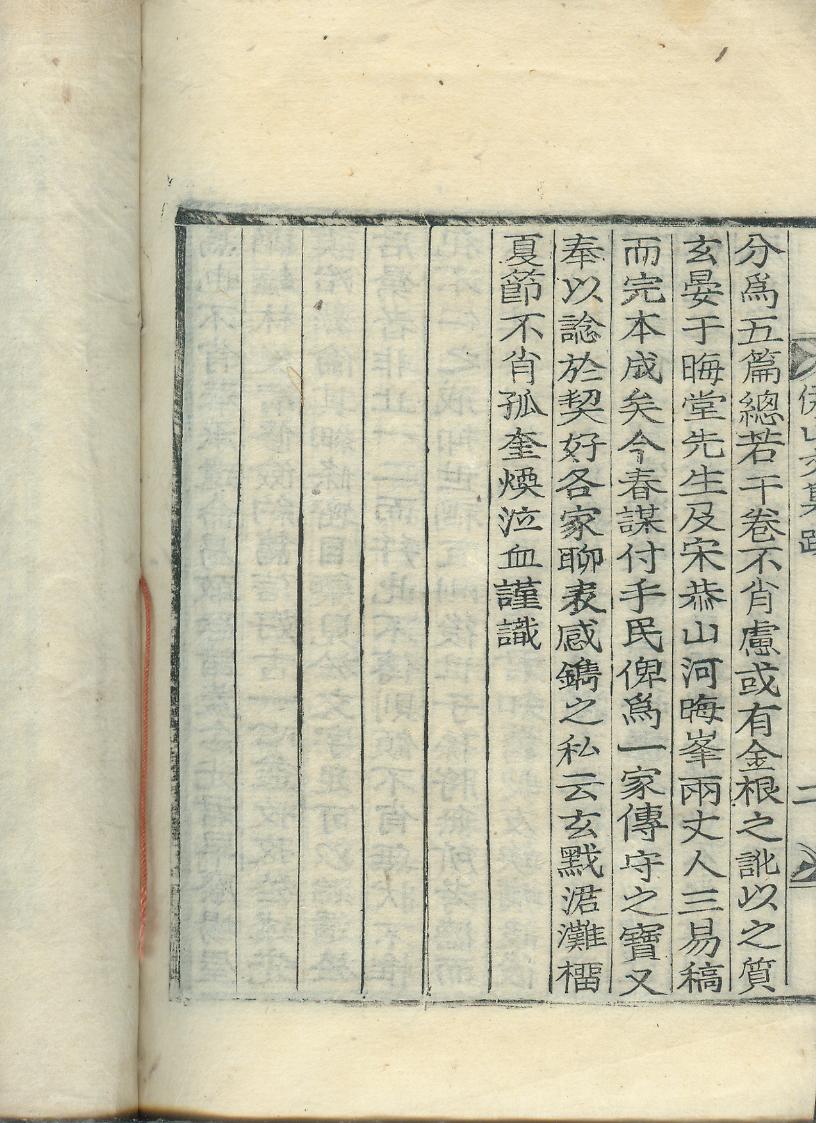 山文集跋
二
分爲五篇總若干卷不肖慮或有金根之訛以之質
玄晏于晦堂先生及宋恭山河晦峯兩丈人三易稿
而完本成矣今春謀付手民俾爲一家傳守之寶又
奉以諗於契好各家聊表感鐫之私云玄黓涒灘榴
夏節不肖孤奎煥泣血謹識